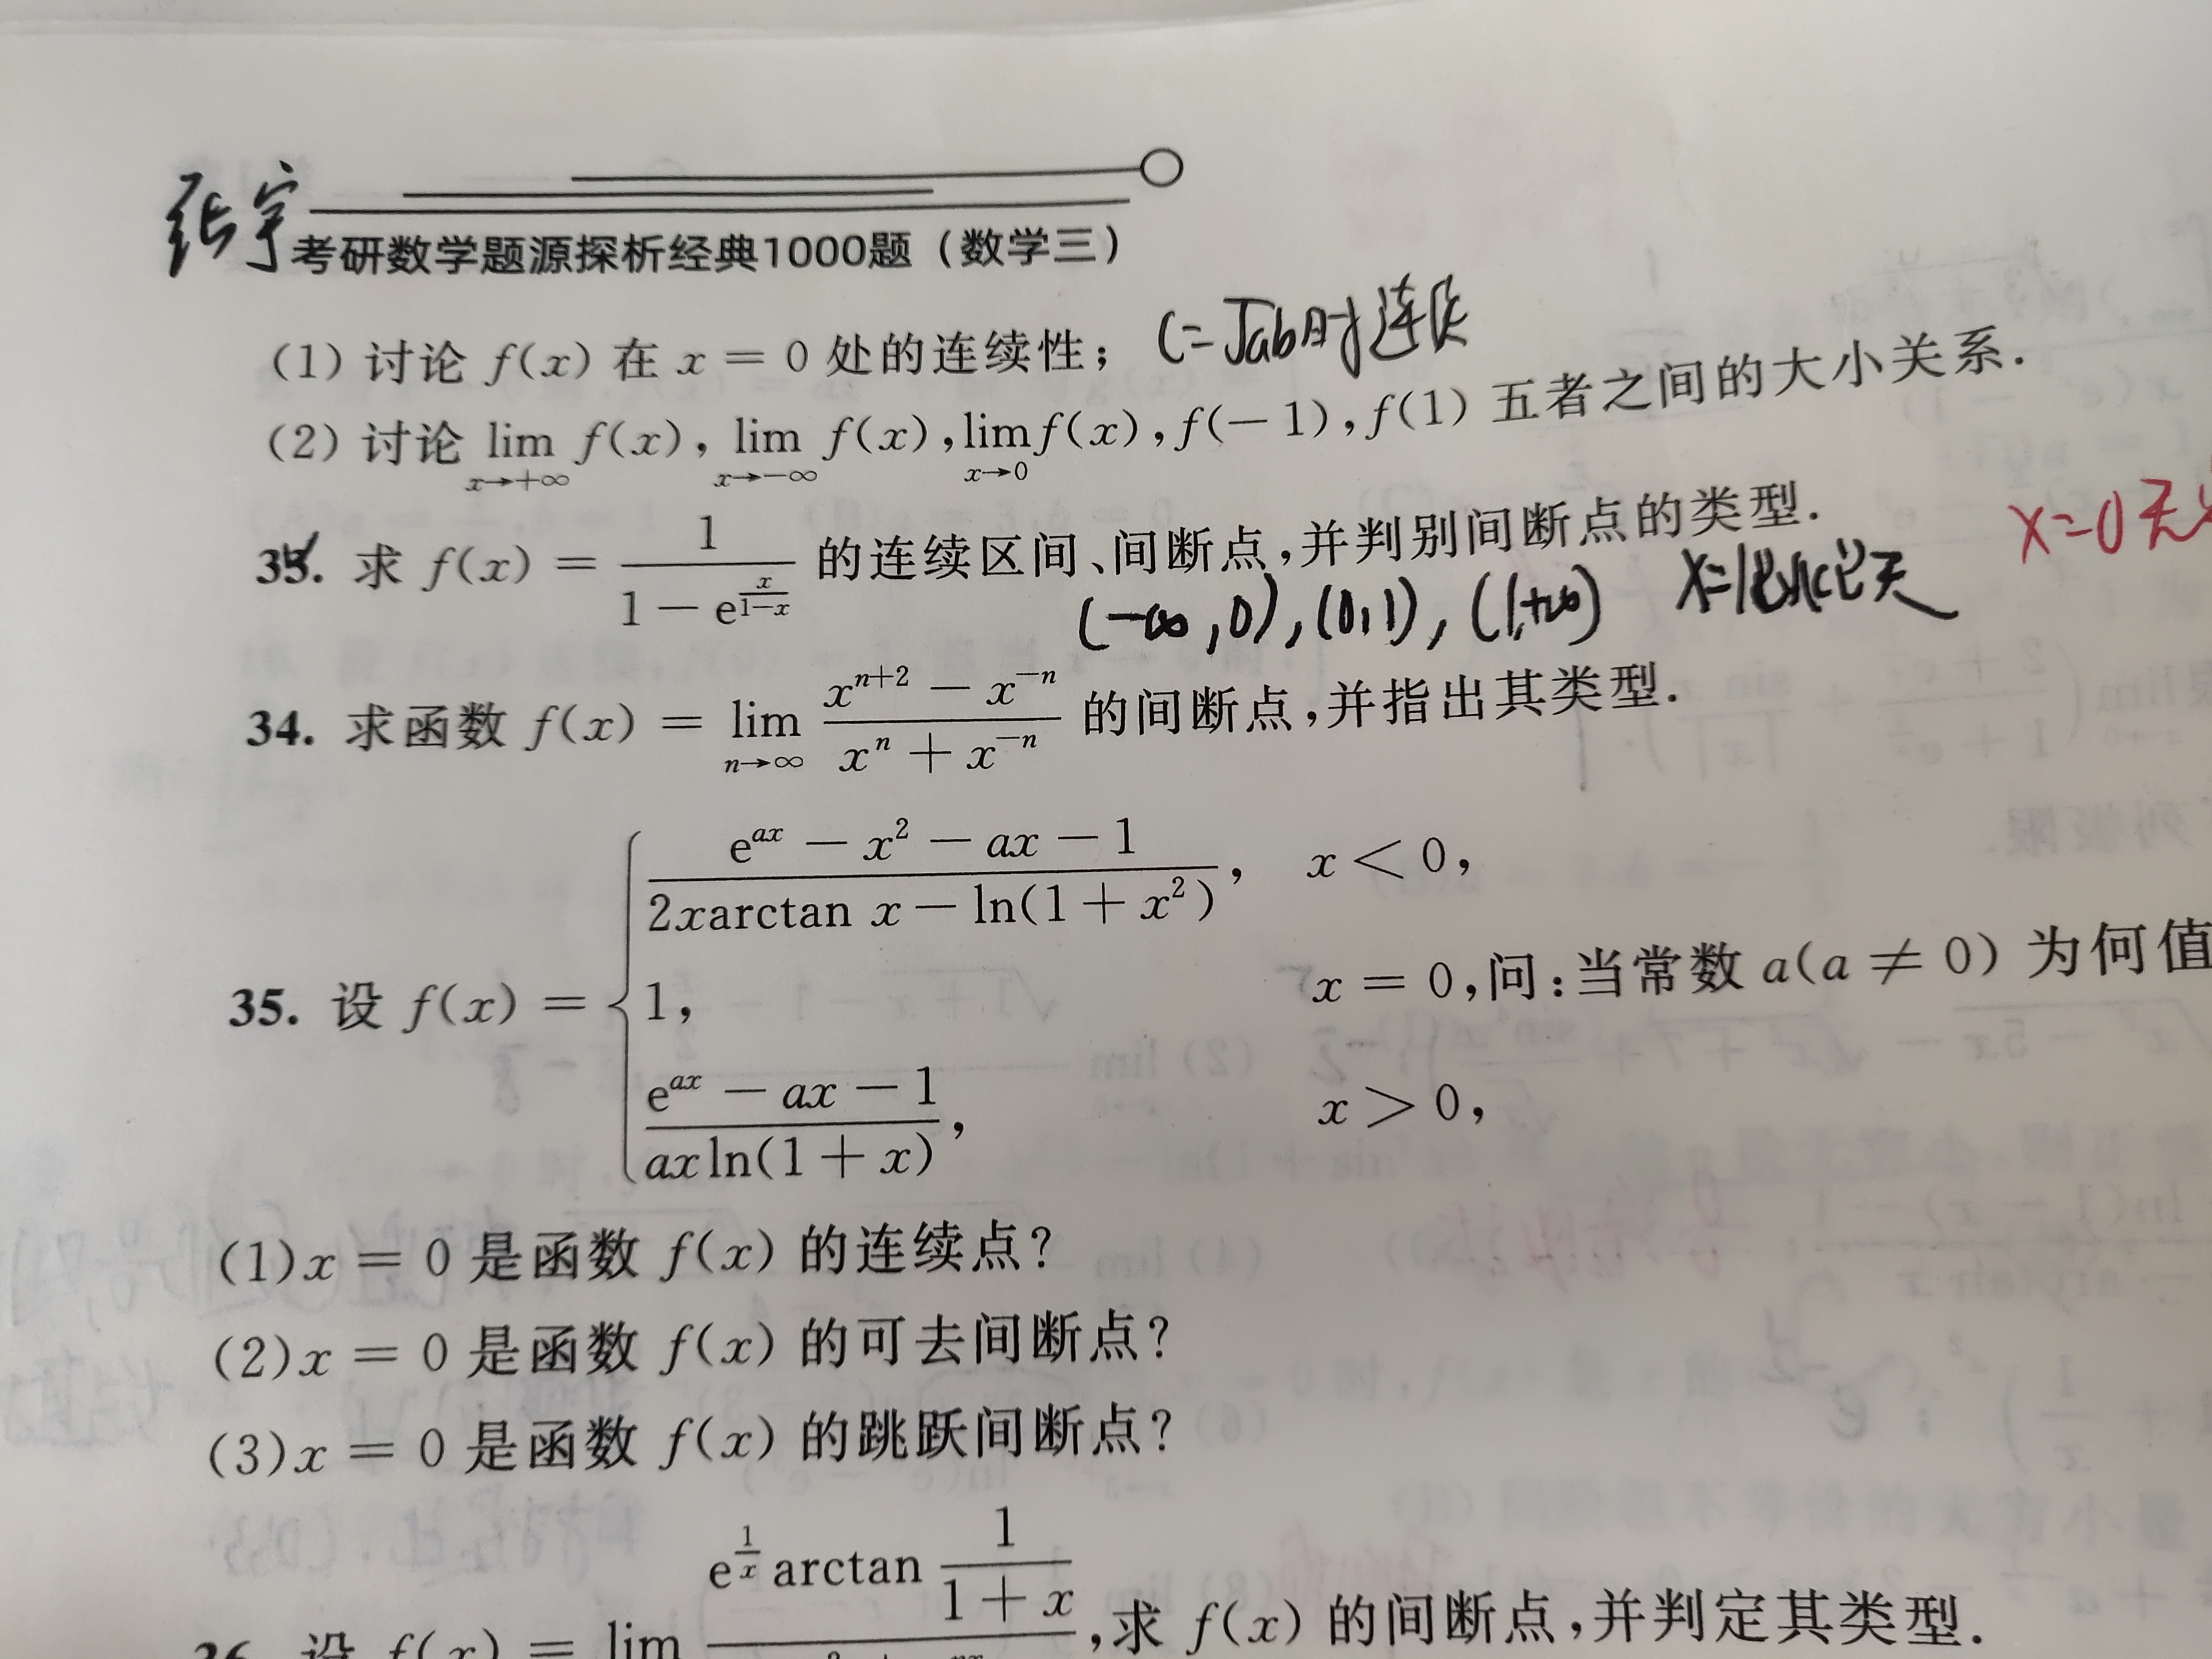 张宇
考研数学题源探析经典1000题（数学三）
(1) 讨论 f(x) 在 x = 0 处的连续性； C=√ab时连续
(2) 讨论 lim_{x→+∞} f(x), lim_{x→-∞} f(x), lim_{x→0} f(x), f(-1), f(1) 五者之间的大小关系.
33. 求 f(x) = 1/(1 - e^{x/(1-x)}) 的连续区间、间断点,并判别间断点的类型. x=0无
(-∞,0),(0,1),(1,+∞) x=1
34. 求函数 f(x) = lim_{n→∞} (x^{n+2} - x^{-n})/(x^n + x^{-n}) 的间断点,并指出其类型.
(e^{ax} - x^2 - ax - 1)/(2xarctan x - ln(1 + x^2)), x < 0,
35. 设 f(x) = { 1, x = 0,问:当常数 a(a ≠ 0) 为何值
(e^{ax} - ax - 1)/(axln(1 + x)), x > 0,
(1)x = 0 是函数 f(x) 的连续点?
(2)x = 0 是函数 f(x) 的可去间断点?
(3)x = 0 是函数 f(x) 的跳跃间断点?
36. 设 f(x) = lim e^{1/x} arctan 1/(1 + x) ,求 f(x) 的间断点,并判定其类型.